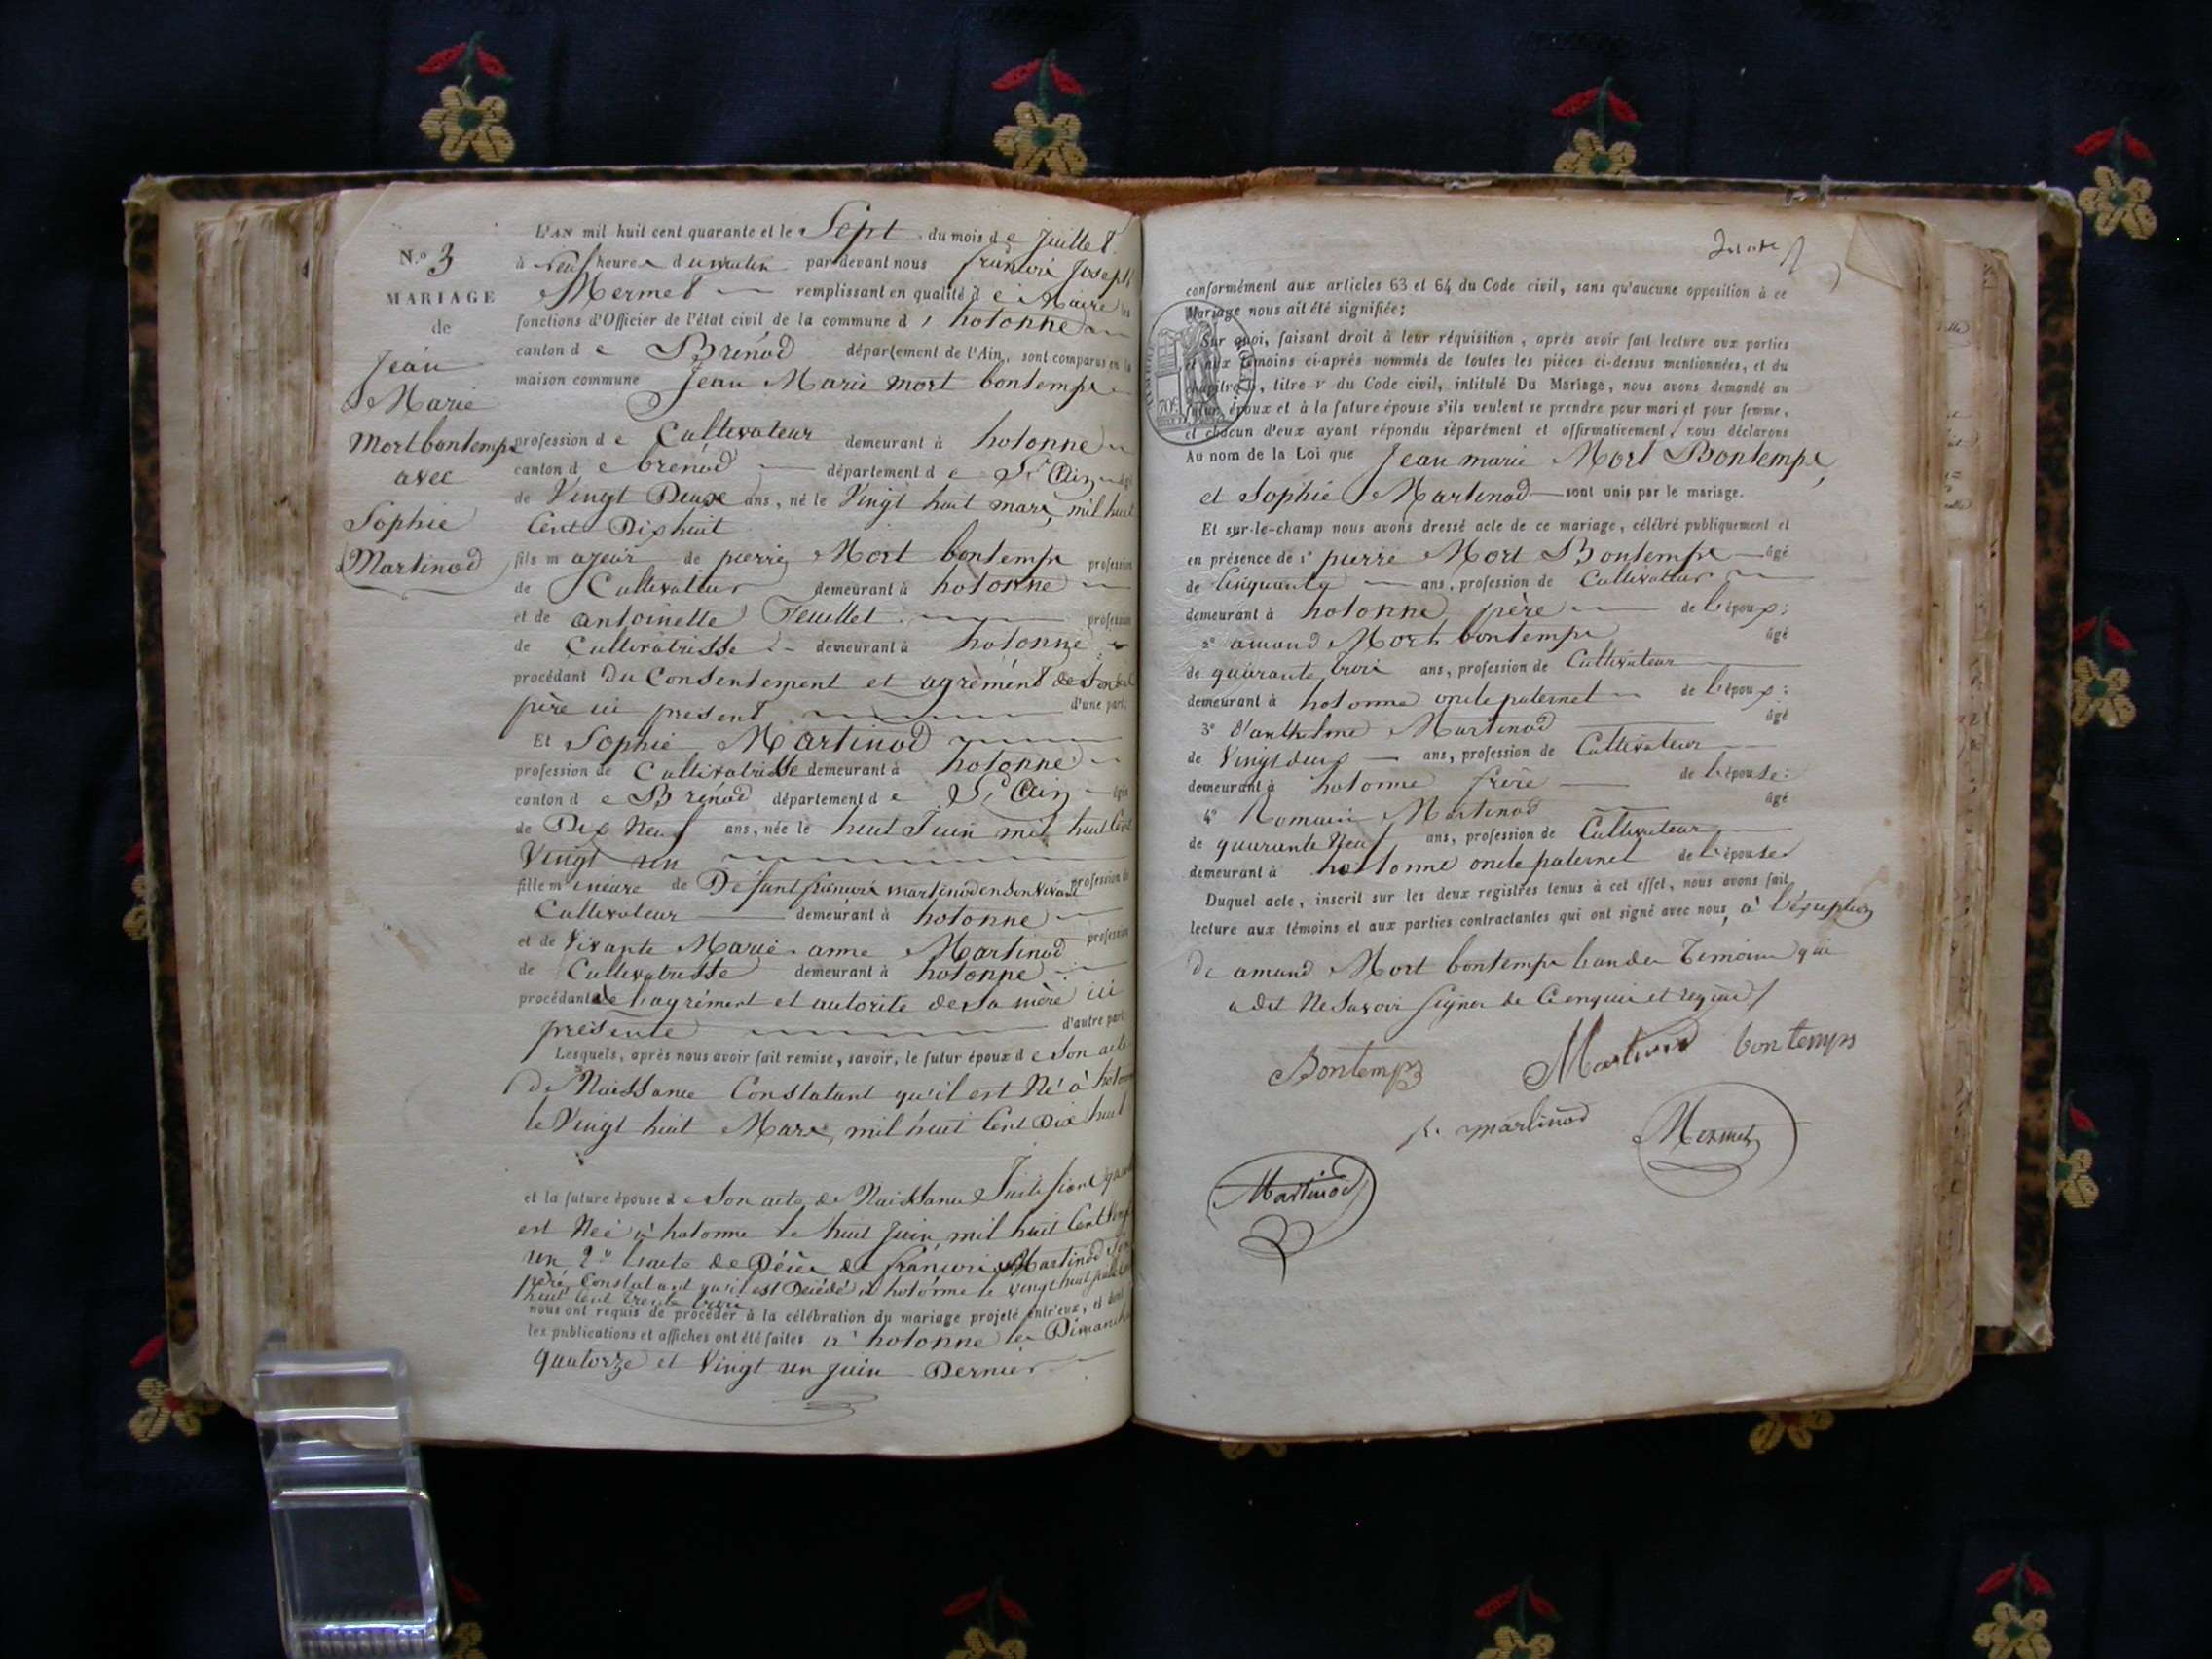 N.º 3
MARIAGE
de
Jean
Marie
Mort bontemps
avec
Sophie
Martinod
L'AN mil huit cent quarante et le Sept du mois de Juillet
à Neuf heures du matin par devant nous françois Joseph
Mermet remplissant en qualité de Maire les
fonctions d'Officier de l'état civil de la commune d'hotonne
canton de Brénod département de l'Ain, sont comparus en la
maison commune Jean Marie mort bontemps
profession de Cultivateur demeurant à hotonne
canton de brénod département de l'Ain âgé
de Vingt Deux ans, né le Vingt huit mars mil huit
Cent Dix huit
fils majeur de pierre Mort bontemps profession
de Cultivateur demeurant à hotonne
et de antoinette Feuillet profession
de Cultivatrisse demeurant à hotonne
procédant du Consentement et agrément de son
père ici present d'une part,
Et Sophie Martinod
profession de Cultivatrisse demeurant à hotonne
canton de Brénod département de l'Ain âgée
de Dix Neuf ans, née le huit Juin mil huit Cent
Vingt un
fille mineure de Défunt françois martinod en son vivant profession de
Cultivateur demeurant à hotonne
et de vivante Marie anne Martinod profession
de Cultivatrisse demeurant à hotonne
procédant de l'agrément et autorité de sa mère ici
présente d'autre part
Lesquels, après nous avoir fait remise, savoir, le futur époux de Son acte
de Naissance Constatant qu'il est Né à hotonne
le Vingt huit Mars, mil huit Cent Dix huit
et la future épouse de Son acte de Naissance Justifiant
est Née à hotonne le huit Juin mil huit Cent Vingt
un 2º l'acte de Décès de françois Martinod Son
père, Constatant qu'il est Décédé à hotonne le vingt huit
huit Cent Trente trois
nous ont requis de procéder à la célébration du mariage projeté entr'eux, et dont
les publications et affiches ont été faites à hotonne les Dimanche
quatorze et Vingt un juin Dernier
conformément aux articles 63 et 64 du Code civil, sans qu'aucune opposition à ce
Mariage nous ait été signifiée;
Sur quoi, faisant droit à leur réquisition, après avoir fait lecture aux parties
et aux témoins ci-après nommés de toutes les pièces ci-dessus mentionnées, et du
chapitre 6, titre v du Code civil, intitulé Du Mariage, nous avons demandé au
futur époux et à la future épouse s'ils veulent se prendre pour mari et pour femme,
et chacun d'eux ayant répondu séparément et affirmativement, nous déclarons
Au nom de la Loi que Jean marie Mort Bontemps,
et Sophie Martinod sont unis par le mariage.
Et sur-le-champ nous avons dressé acte de ce mariage, célébré publiquement et
en présence de 1º pierre Mort Bontemps âgé
de Cinquante ans, profession de Cultivateur
demeurant à hotonne père de l'époux;
2º amand Mort bontemps âgé
de quarante trois ans, profession de Cultivateur
demeurant à hotonne oncle paternel de l'époux;
3º d'anthelme Martinod âgé
de Vingt deux ans, profession de Cultivateur
demeurant à hotonne frère de l'épouse;
4º Romain Martinod âgé
de quarante Neuf ans, profession de Cultivateur
demeurant à hotonne oncle paternel de l'épouse
Duquel acte, inscrit sur les deux registres tenus à cet effet, nous avons fait
lecture aux témoins et aux parties contractantes qui ont signé avec nous, à l'éxception
de amand Mort bontemps l'un des Temoins qui
a dit Ne Savoir signer de Ce enquis et requis
Bontemps Martinod bontemps
martinod Mermet
Martinod